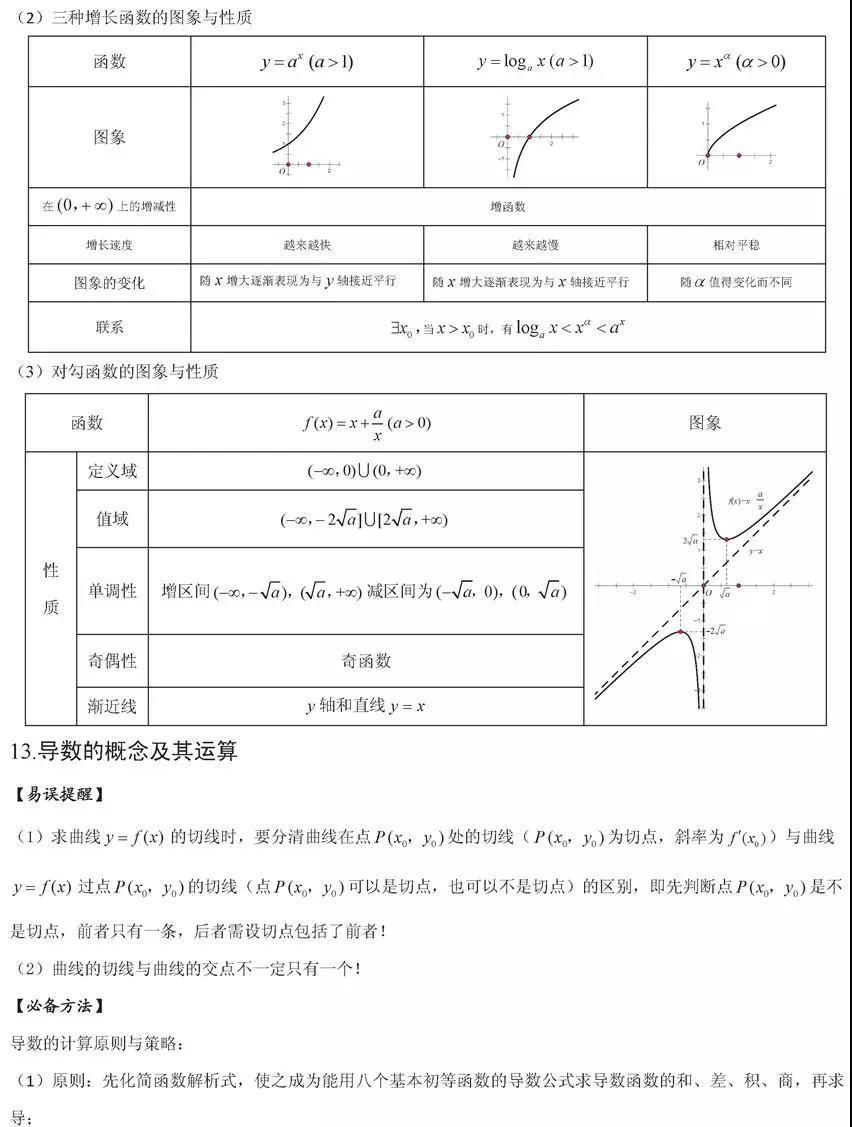 （2）三种增长函数的图象与性质
函数 y=aˣ (a>1) y=logₐ x (a>1) y=x^α (α>0)
图象
3 2 1 O 2
1 O 2 -1
1 O 2
在(0，+∞)上的增减性 增函数
增长速度 越来越快 越来越慢 相对平稳
图象的变化 随 x 增大逐渐表现为与 y 轴接近平行 随 x 增大逐渐表现为与 x 轴接近平行 随 α 值得变化而不同
联系 ∃x₀，当 x>x₀ 时，有 logₐ x<x^α<aˣ
（3）对勾函数的图象与性质
函数 f(x)=x+a/x (a>0) 图象
性质
定义域 (−∞，0)∪(0，+∞)
值域 (−∞，−2√a]∪[2√a，+∞)
单调性 增区间(−∞，−√a)，(√a，+∞) 减区间为(−√a，0)，(0，√a)
奇偶性 奇函数
渐近线 y 轴和直线 y=x
3
f(x)=x a/x
2
2√a
y=x
1
-√a
-2 O √a 2
-1
-2√a
13.导数的概念及其运算
【易误提醒】
（1）求曲线 y=f(x) 的切线时，要分清曲线在点 P(x₀，y₀)处的切线（ P(x₀，y₀)为切点，斜率为 f′(x₀)）与曲线
y=f(x) 过点 P(x₀，y₀)的切线（点 P(x₀，y₀)可以是切点，也可以不是切点）的区别，即先判断点 P(x₀，y₀)是不
是切点，前者只有一条，后者需设切点包括了前者！
（2）曲线的切线与曲线的交点不一定只有一个！
【必备方法】
导数的计算原则与策略：
（1）原则：先化简函数解析式，使之成为能用八个基本初等函数的导数公式求导数函数的和、差、积、商，再求
导；